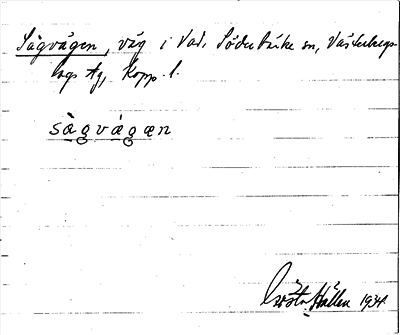 Sågvägen, väg i Vad, Söderbärke sn, Västerbergs-
lags tg, Kopp. l.
sàgvágæn
Gösta Hallén 1934